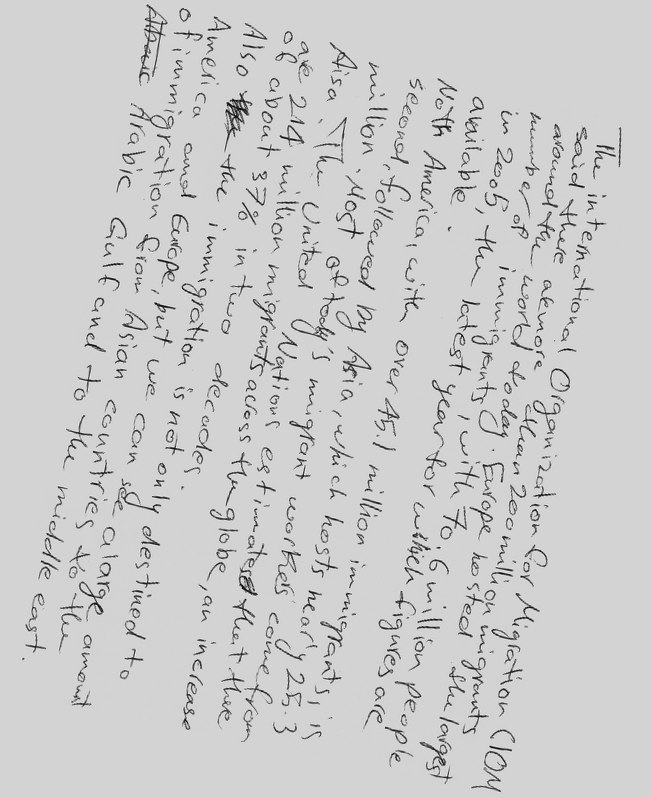 The international Organization for Migration (IOM
said there are more than 200 million migrants
around the world today. Europe hosted the largest
number of immigrants, with 70.6 million people
in 2005, the latest year for which figures are
available.
North America, with over 45.1 million immigrants, is
second, followed by Asia, which hosts nearly 25.3
million. Most of today's migrant workers come from
Aisa. The United Nations estimates that there
are 214 million migrants across the globe, an increase
of about 37% in two decades.
Also the immigration is not only destined to
America and Europe, but we can see a large amount
of immigration from Asian countries to the
Arabic Gulf and to the middle east.